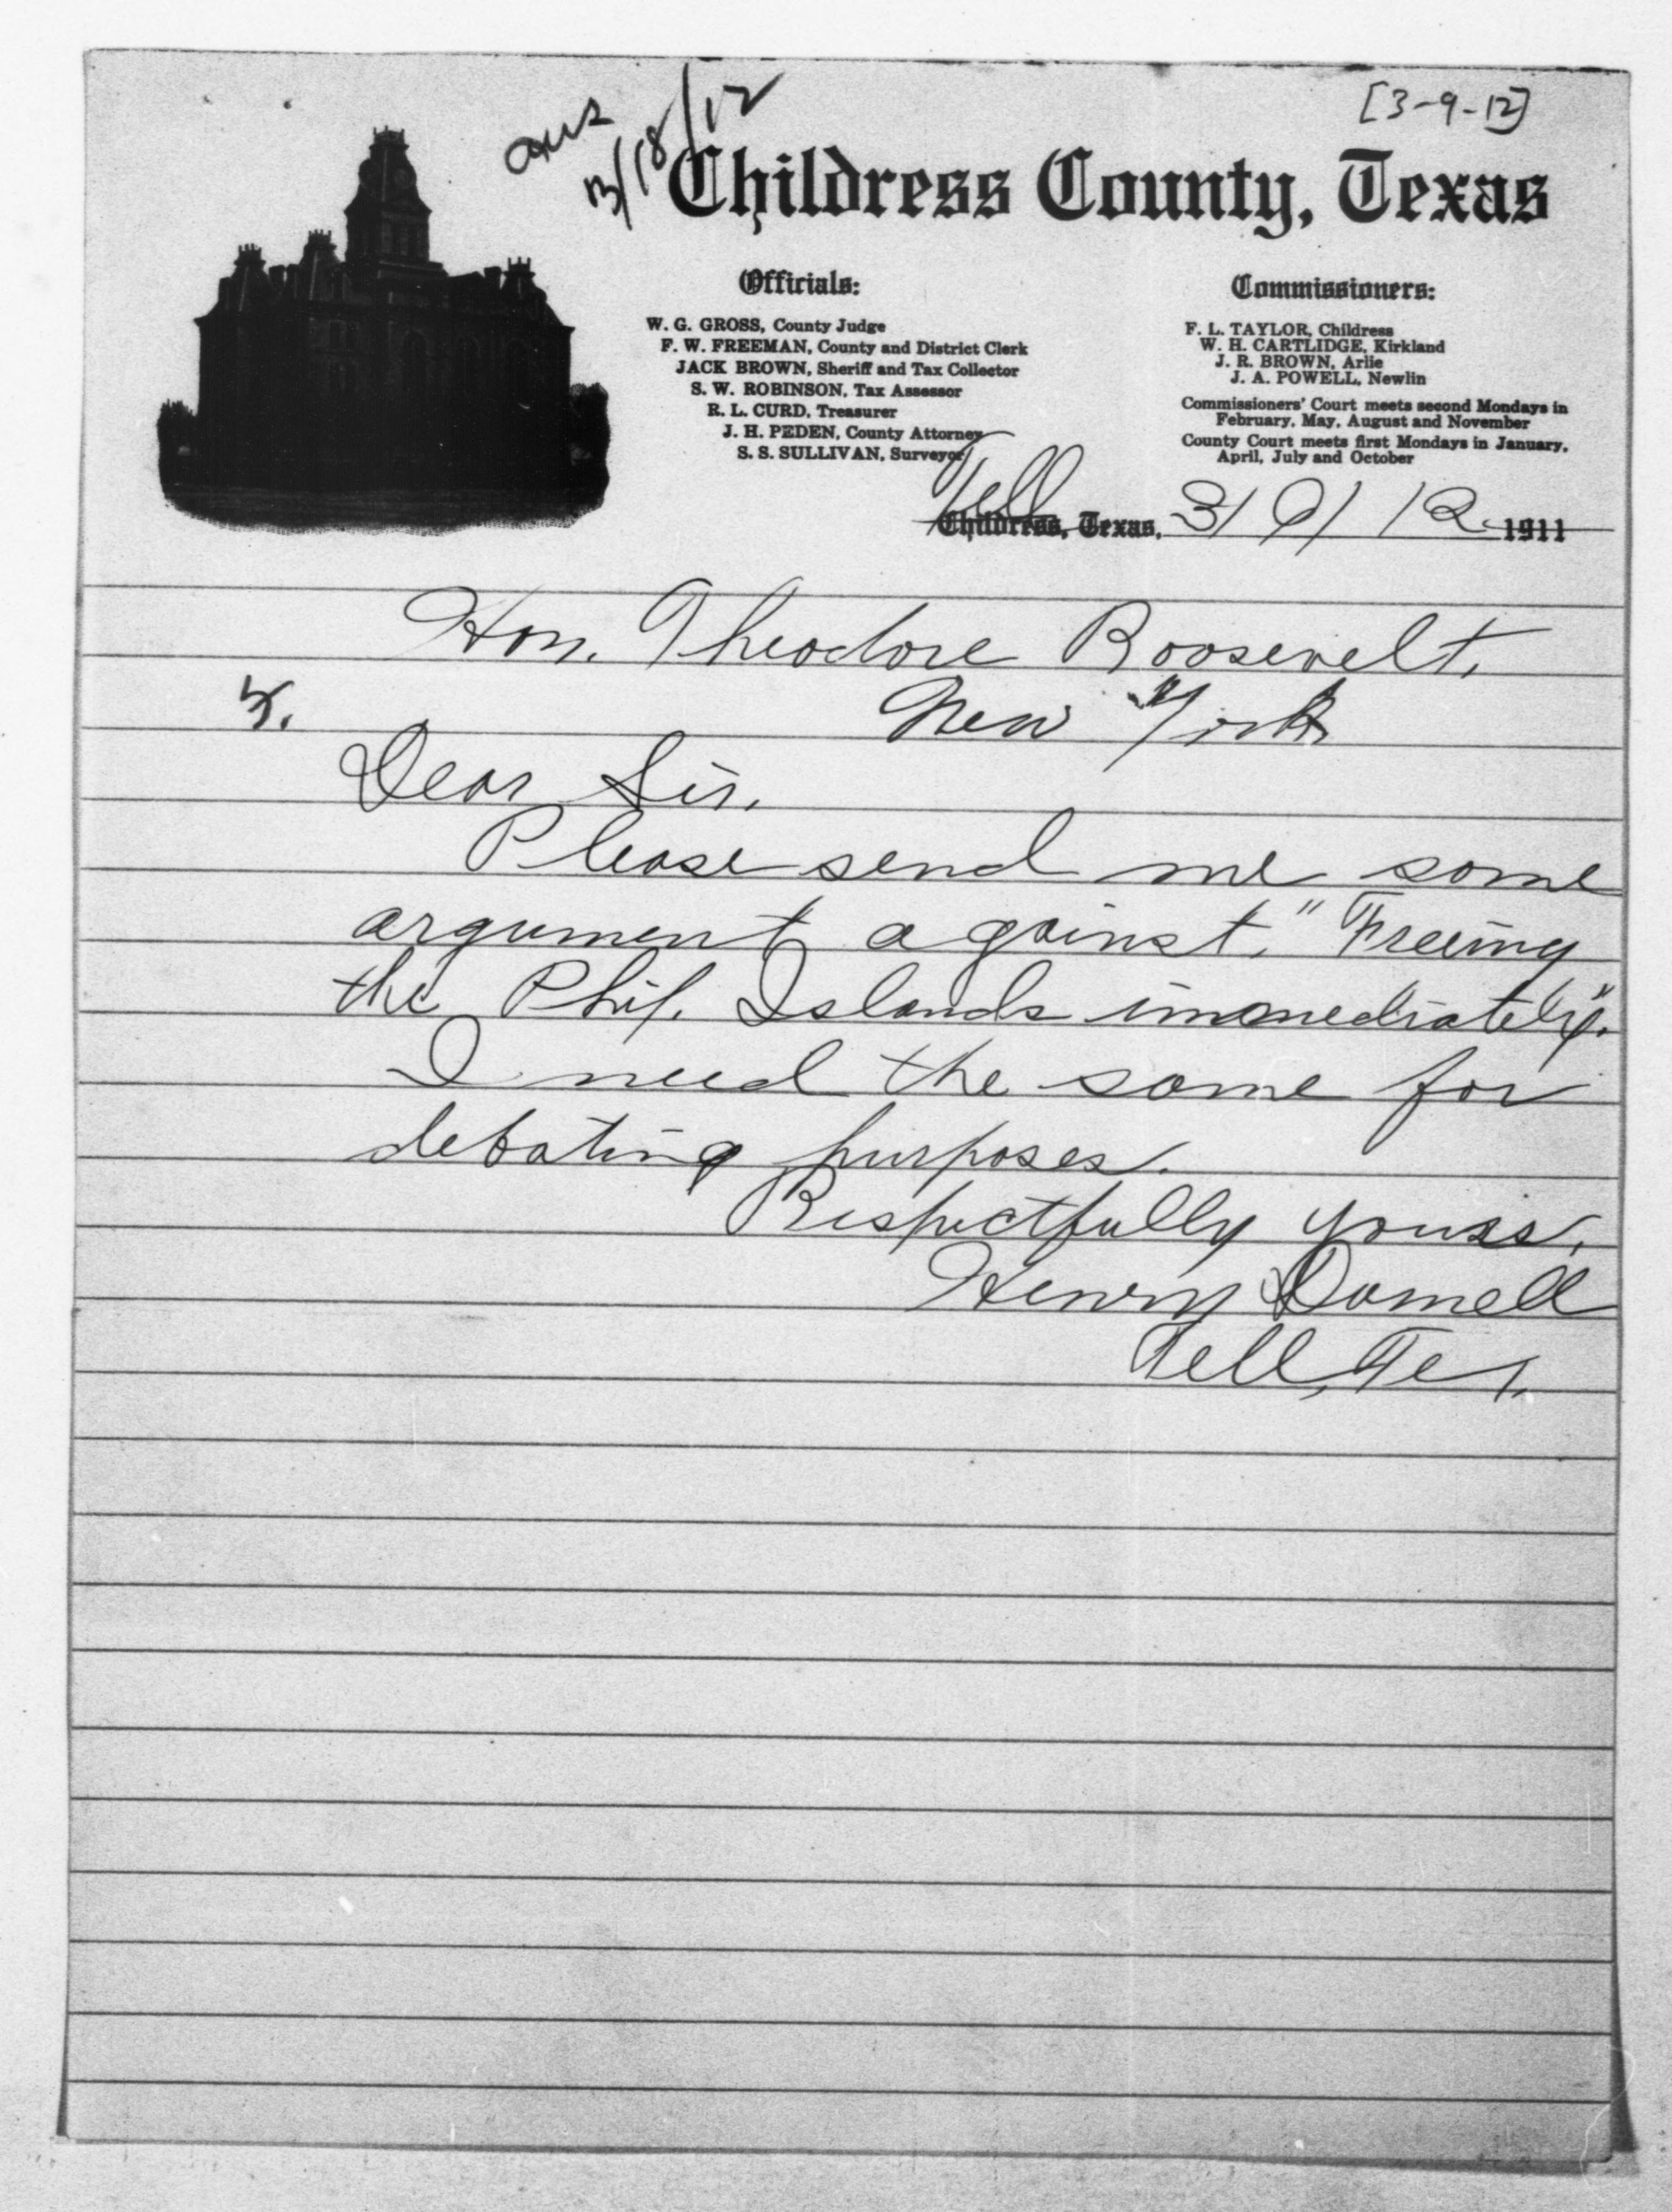 ans
3/18/12
[3-9-12]
Childress County, Texas
Officials:
W. G. GROSS, County Judge
F. W. FREEMAN, County and District Clerk
JACK BROWN, Sheriff and Tax Collector
S. W. ROBINSON, Tax Assessor
R. L. CURD, Treasurer
J. H. PEDEN, County Attorney
S. S. SULLIVAN, Surveyor
Commissioners:
F. L. TAYLOR, Childress
W. H. CARTLIDGE, Kirkland
J. R. BROWN, Arlie
J. A. POWELL, Newlin
Commissioners' Court meets second Mondays in
February, May, August and November
County Court meets first Mondays in January,
April, July and October
Tell
Childress, Texas, 3/9/12 1911
Hon. Theodore Roosevelt,
New York
Dear Sir,
Please send me some
argument against, "Freeing
the Phil. Islands immediately".
I need the same for
debating purposes.
Respectfully yours,
Henry
Tell, Tex.